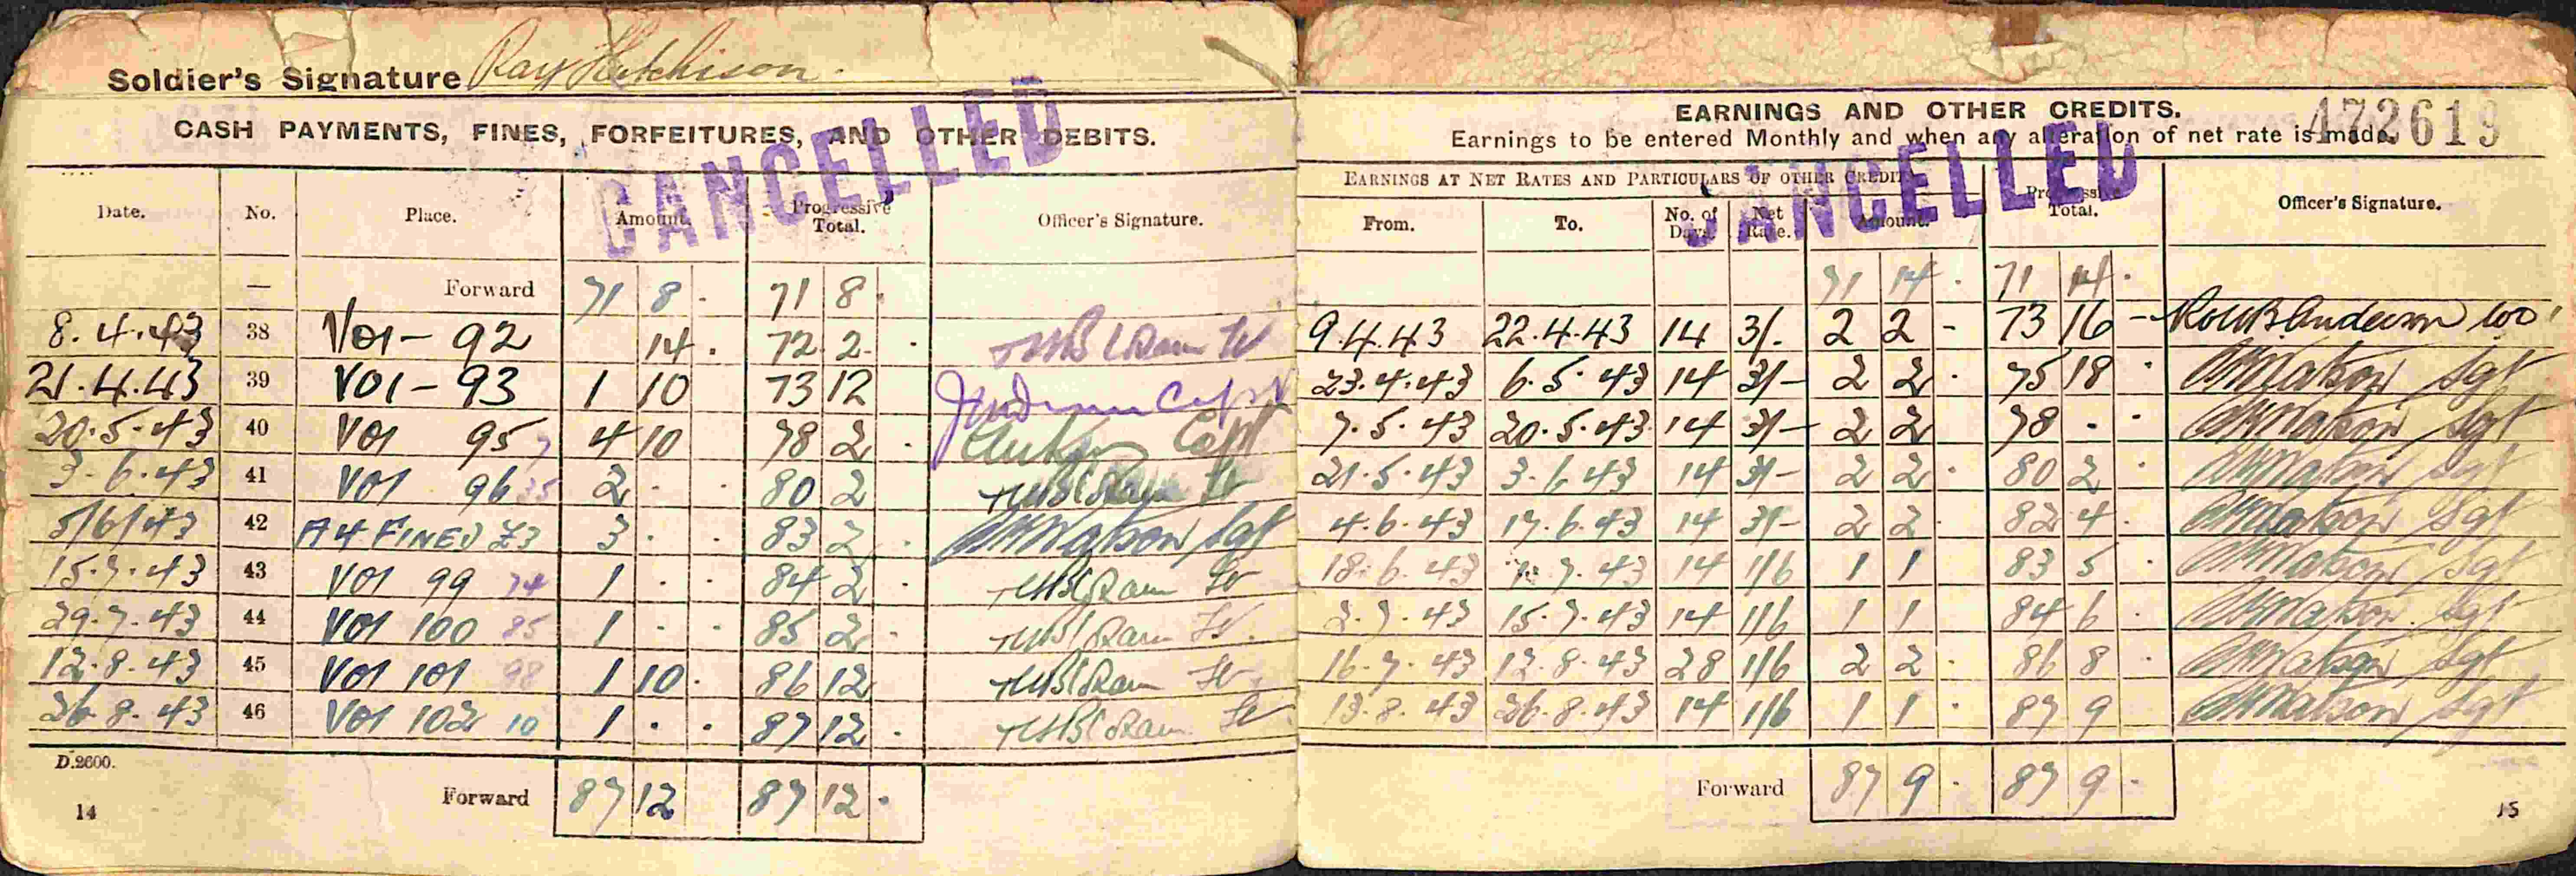 Soldier's Signature Ray Hutchison.
CASH PAYMENTS, FINES, FORFEITURES, AND OTHER DEBITS.
CANCELLED
Date. No. Place. Amount. Progressive Total. Officer's Signature.
— Forward 71 8 - 71 8 .
8.4.43 38 V01 - 92 14 . 72 2 .
21.4.43 39 V01 - 93 1 10 73 12 Capt
20.5.43 40 V01 95 4 10 78 2 . Capt
3.6.43 41 V01 96 35 2 . . 80 2 Lt
5/6/43 42 A4 FINED £3 3 . . 83 2 . Watson Sgt
15.7.43 43 V01 99 74 1 . . 84 2 . Lt
29.7.43 44 V01 100 85 1 . . 85 2 . Lt.
12.8.43 45 V01 101 98 1 10 . 86 12 Lt.
26.8.43 46 V01 102 10 1 . . 87 12 . Lt
D.2600.
Forward 87 12 87 12 .
14
472619
EARNINGS AND OTHER CREDITS.
Earnings to be entered Monthly and when any alteration of net rate is made.
CANCELLED
EARNINGS AT NET RATES AND PARTICULARS OF OTHER CREDITS
From. To. No. of Days. Net Rate. Amount. Progressive Total. Officer's Signature.
71 14 . 71 14 .
9.4.43 22.4.43 14 3/- 2 2 - 73 16 - Anderson WO1
23.4.43 6.5.43 14 3/- 2 2 . 75 18 . Watson Sgt
7.5.43 20.5.43 14 3/- 2 2 78 . . Watson Sgt
21.5.43 3.6.43 14 3/- 2 2 . 80 2 . Watson Sgt
4.6.43 17.6.43 14 3/- 2 2 . 82 4 . Watson Sgt
18.6.43 7.43 14 1/6 1 1 83 5 . Watson Sgt
2.7.43 15.7.43 14 1/6 1 1 84 6 . Watson Sgt
16.7.43 12.8.43 28 1/6 2 2 . 86 8 . Watson Sgt
13.8.43 26.8.43 14 1/6 1 1 . 87 9 Watson Sgt
Forward 87 9 . 87 9 .
15